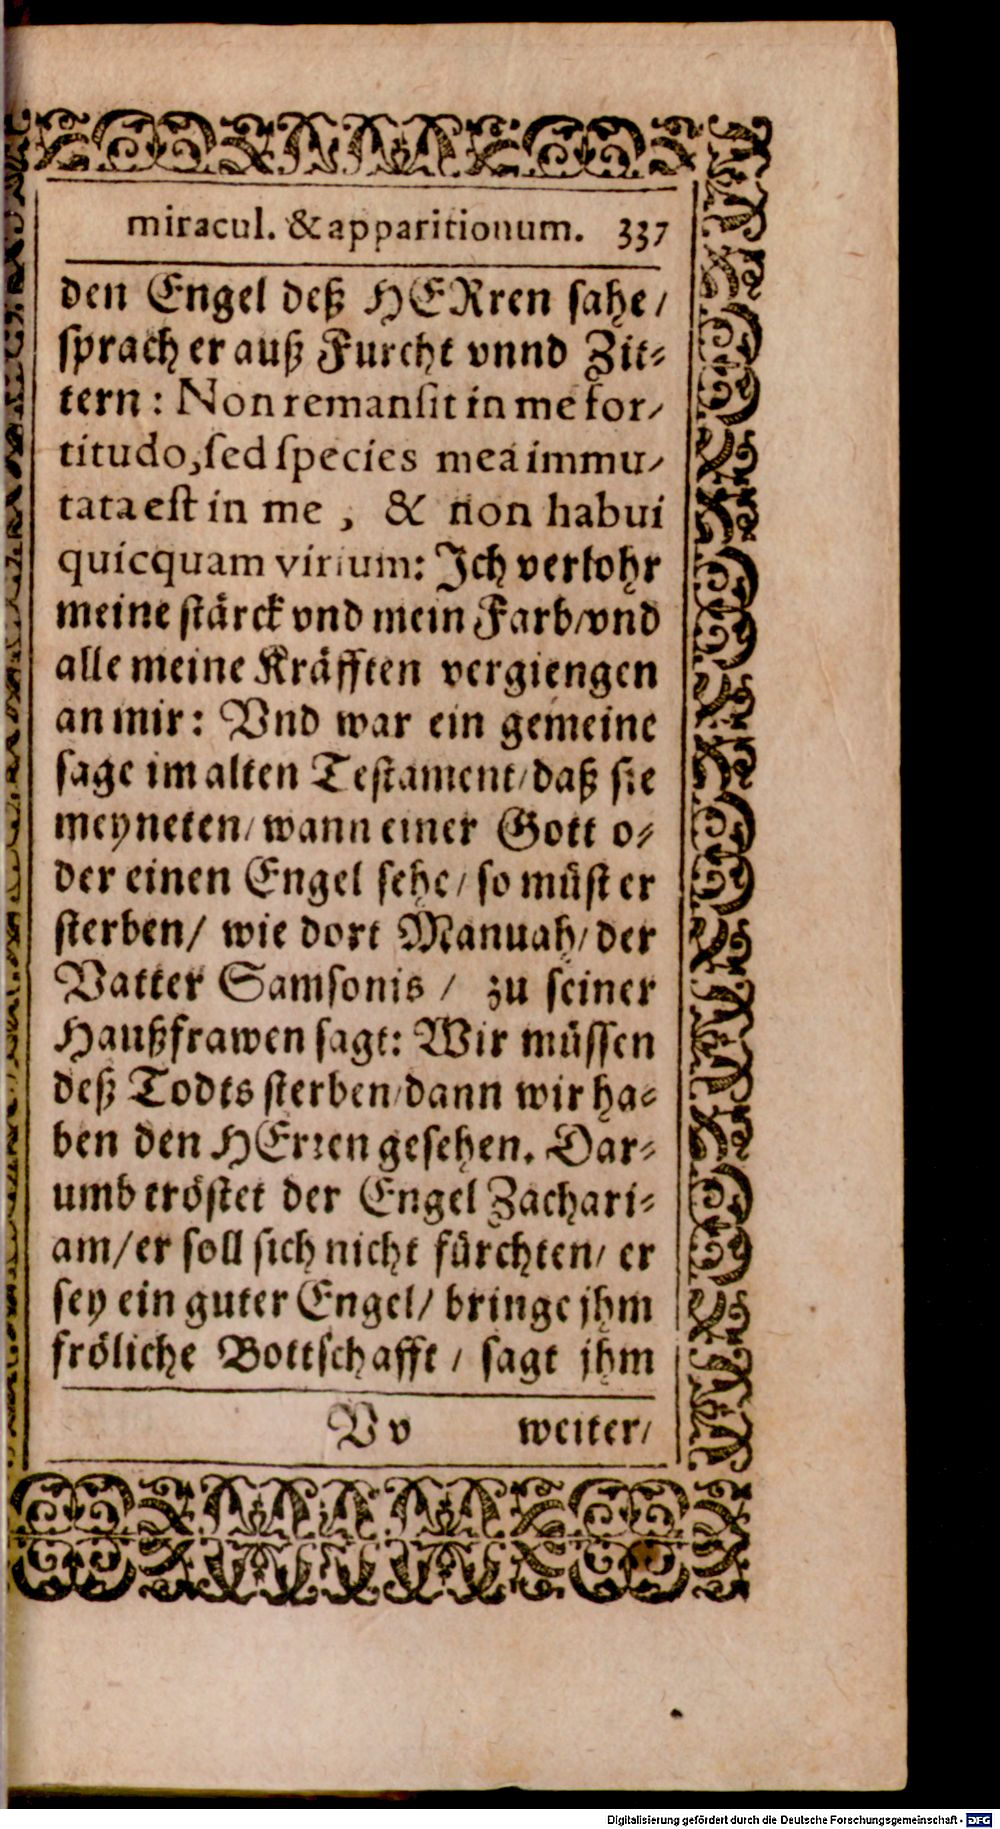 miracul. & apparitionum. 337
den Engel deß HERren sahe/
sprach er auß Furcht vnnd Zit⸗
tern: Non remansit in me for-
titudo, sed species mea immu-
tata est in me, & non habui
quicquam virium: Ich verlohr
meine stärck vnd mein Farb/vnd
alle meine Kräfften vergiengen
an mir: Vnd war ein gemeine
sage im alten Testament/daß sie
meyneten/wann einer Gott o⸗
der einen Engel sehe/ so müst er
sterben/ wie dort Manuah/der
Vatter Samsonis / zu seiner
Haußfrawen sagt: Wir müssen
deß Todts sterben/dann wir ha⸗
ben den HErren gesehen. Dar⸗
umb tröstet der Engel Zachari⸗
am/er soll sich nicht fürchten/ er
sey ein guter Engel/ bringe jhm
fröliche Bottschafft / sagt jhm
Vv weiter/
Digitalisierung gefördert durch die Deutsche Forschungsgemeinschaft - DFG